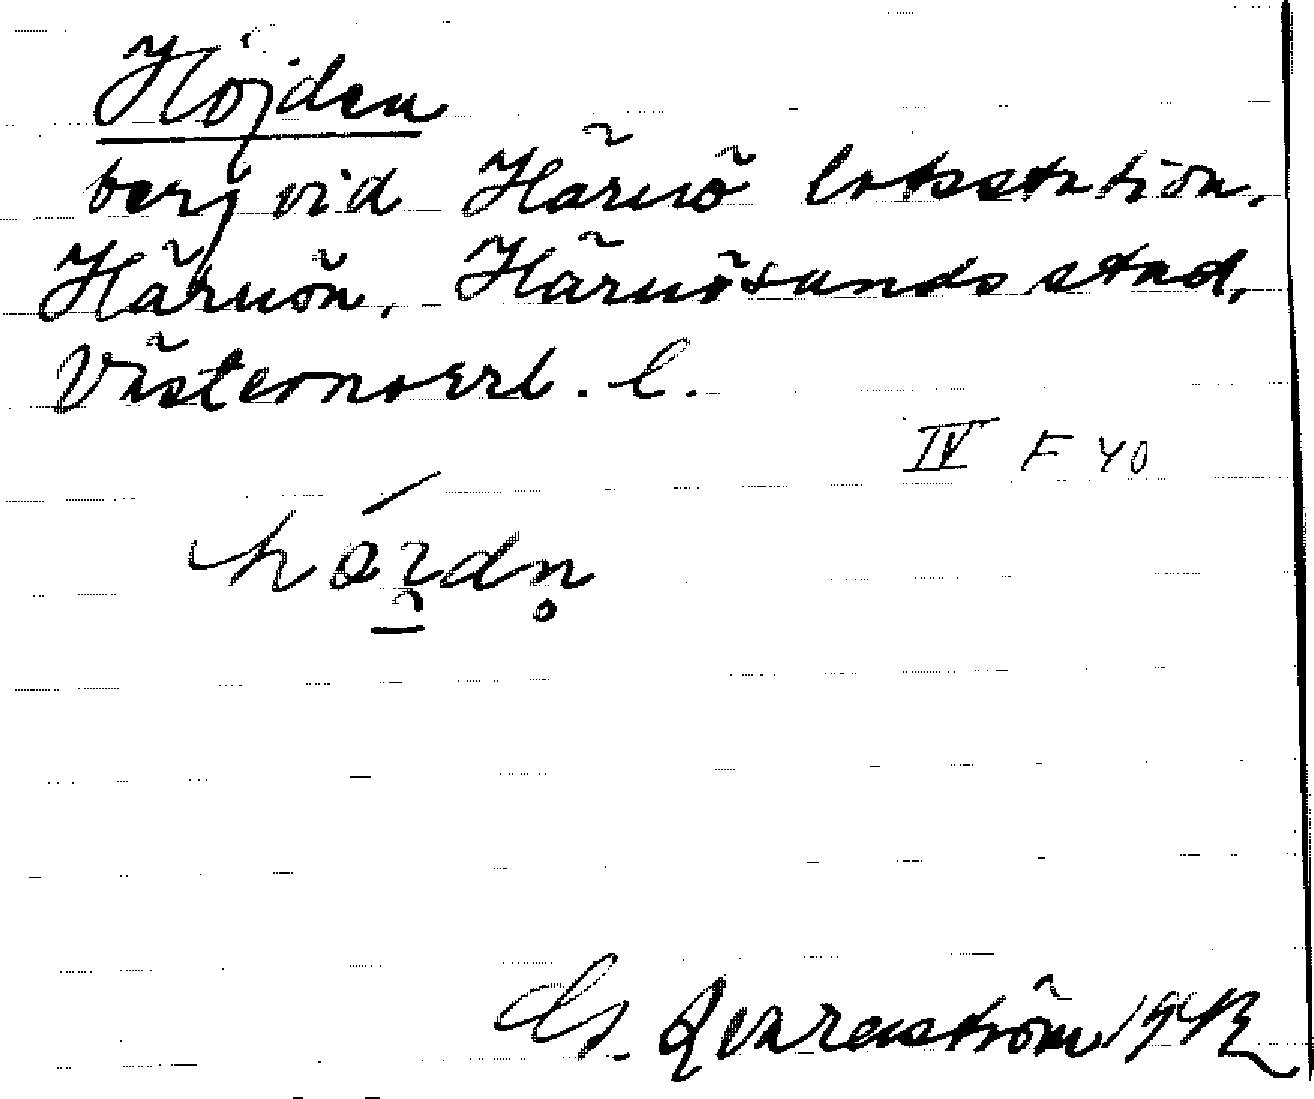 Höjden
berg vid Härnö lotsstation,
Härnön, Härnösands stad,
Västernorrl. l.
IV F 40
G. Qvarnström 1942